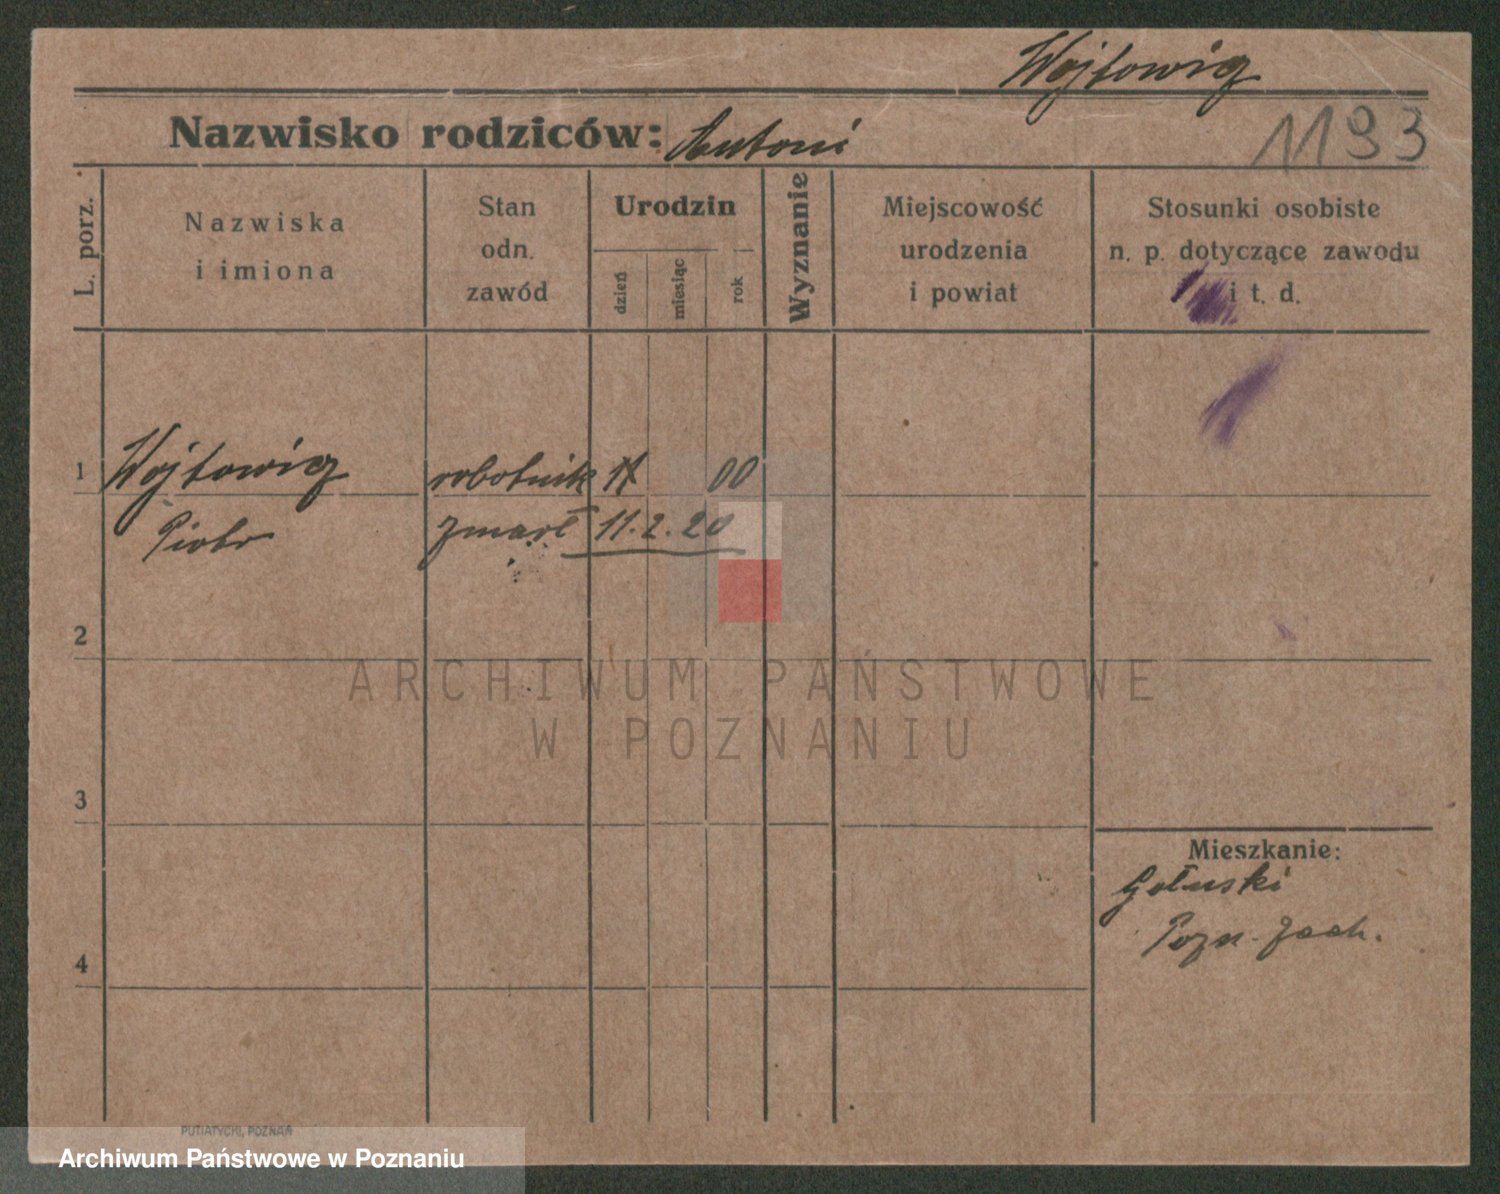 Wojtowicz
Nazwisko rodziców: Antoni
1193
L. porz.
Nazwiska
i imiona
Stan
odn.
zawód
Urodzin
dzień
miesiąc
rok
Wyznanie
Miejscowość
urodzenia
i powiat
Stosunki osobiste
n. p. dotyczące zawodu
i t. d.
1
Wojtowicz
robotnik
00
Piotr
zmarł 11.2.20
2
ARCHIWUM PAŃSTWOWE
W POZNANIU
3
Mieszkanie:
Gołuski
Pozn. Zach.
4
PUTIATYCKI, POZNAŃ
Archiwum Państwowe w Poznaniu